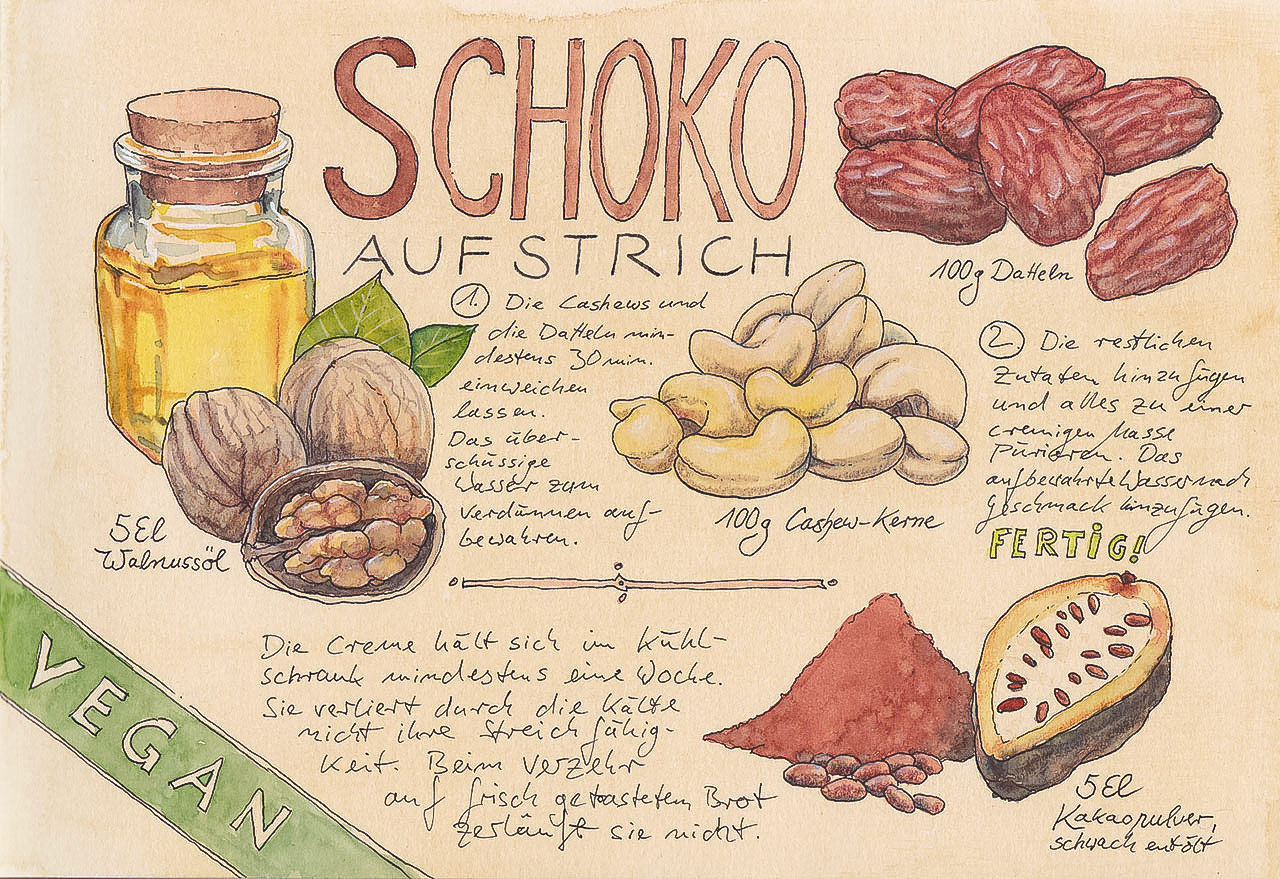 SCHOKO
AUFSTRICH
100g Datteln
1. Die Cashews und
die Datteln min-
destens 30 min.
einweichen
lassen.
Das über-
schüssige
Wasser zum
Verdünnen auf-
bewahren.
2. Die restlichen
Zutaten hinzufügen
und alles zu einer
cremigen Masse
Pürieren. Das
aufbewahrte Wasser nach
Geschmack hinzufügen.
FERTIG!
100g Cashew-Kerne
5 El
Walnussöl
Die Creme hält sich im Kühl-
schrank mindestens eine Woche.
Sie verliert durch die Kälte
nicht ihre Streichfähig-
keit. Beim Verzehr
auf frisch getoastetem Brot
zerläuft sie nicht.
VEGAN
5 El
Kakaopulver,
schwach entölt